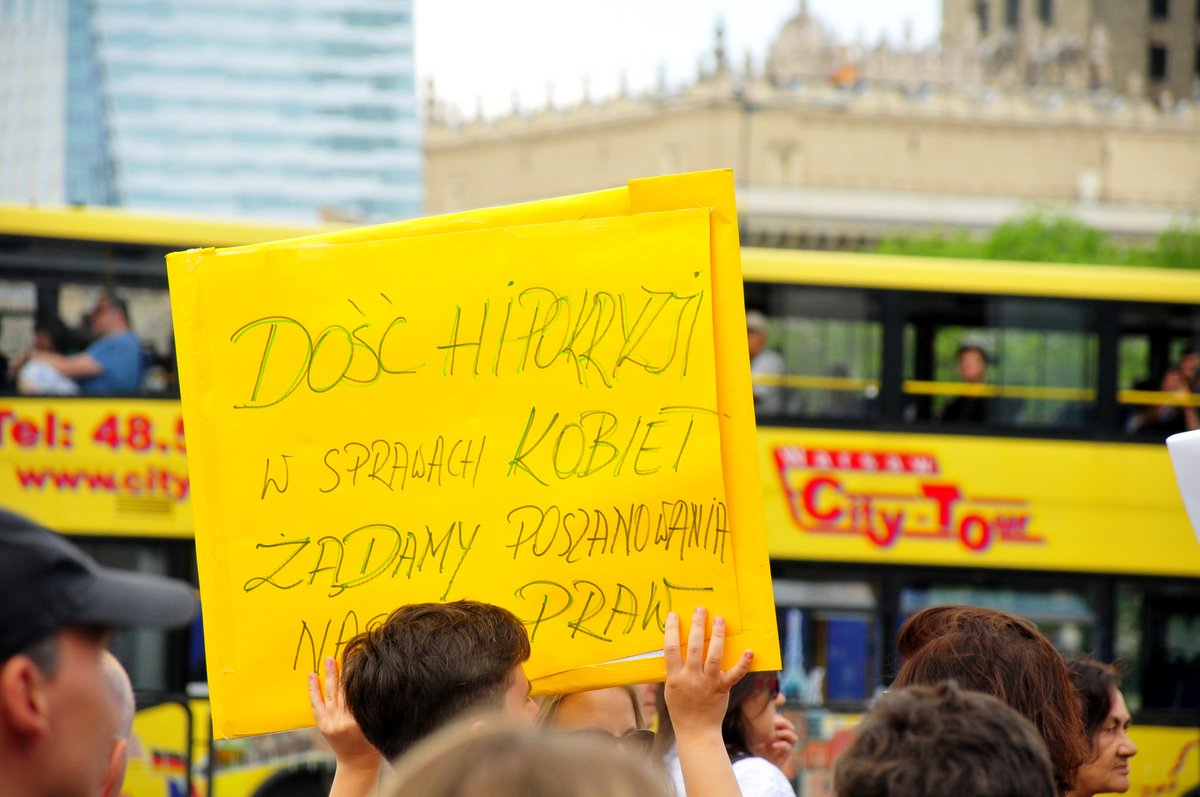 DOŚĆ HIPOKRYZJI
W SPRAWACH KOBIET
ŻĄDAMY POSZANOWANIA
PRAW
Tel: 48.5
www.city
WARSAW
City-Tour